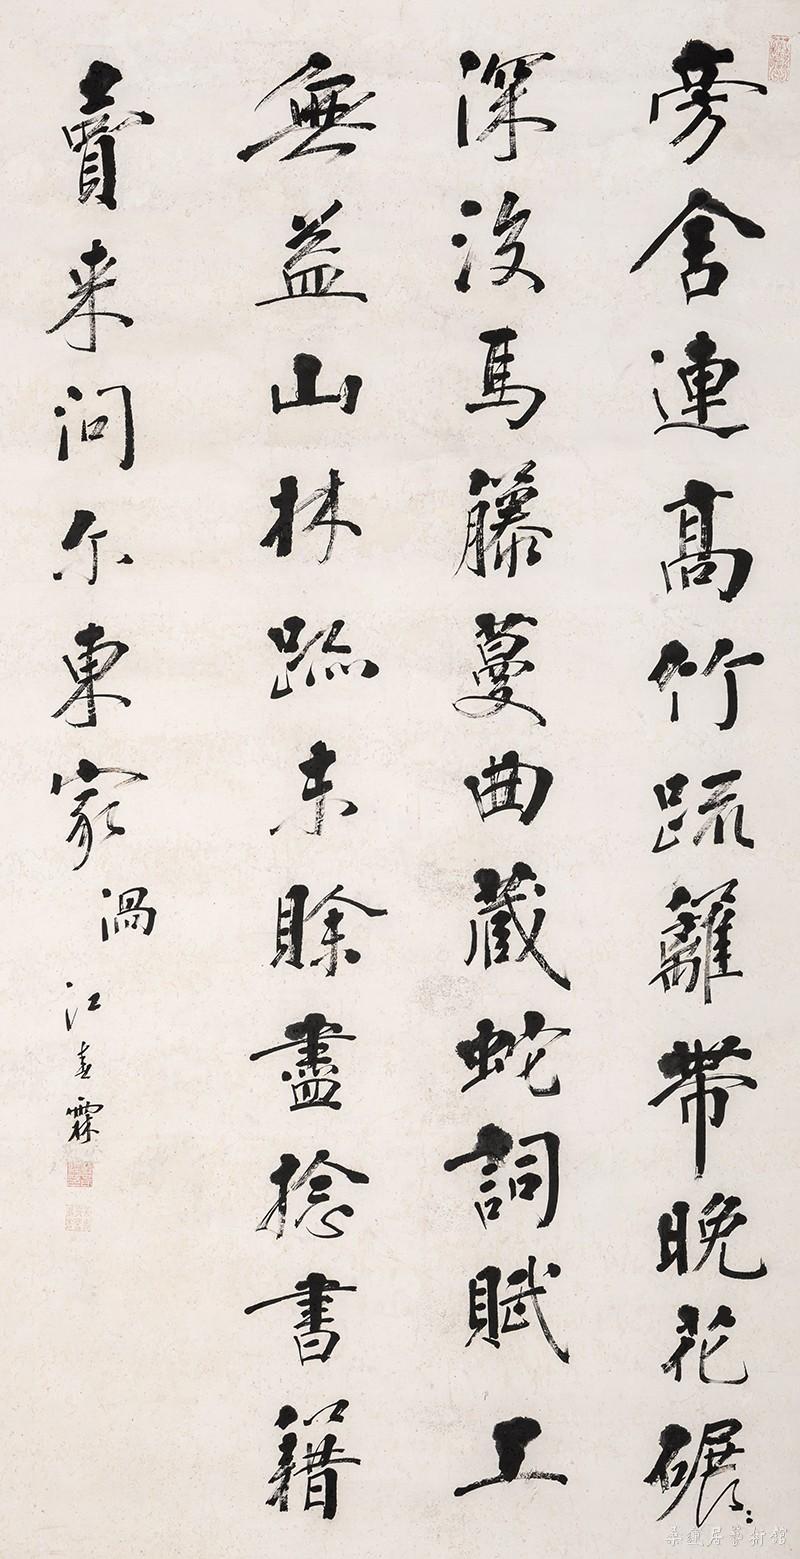 旁舍連髙竹疏籬帶晚花碾
深没馬籐蔓曲藏蛇詞賦工
無益山林跡未賒盡捻書籍
賣来問尔東家
渦
江春霖
桑蓮居藝術館